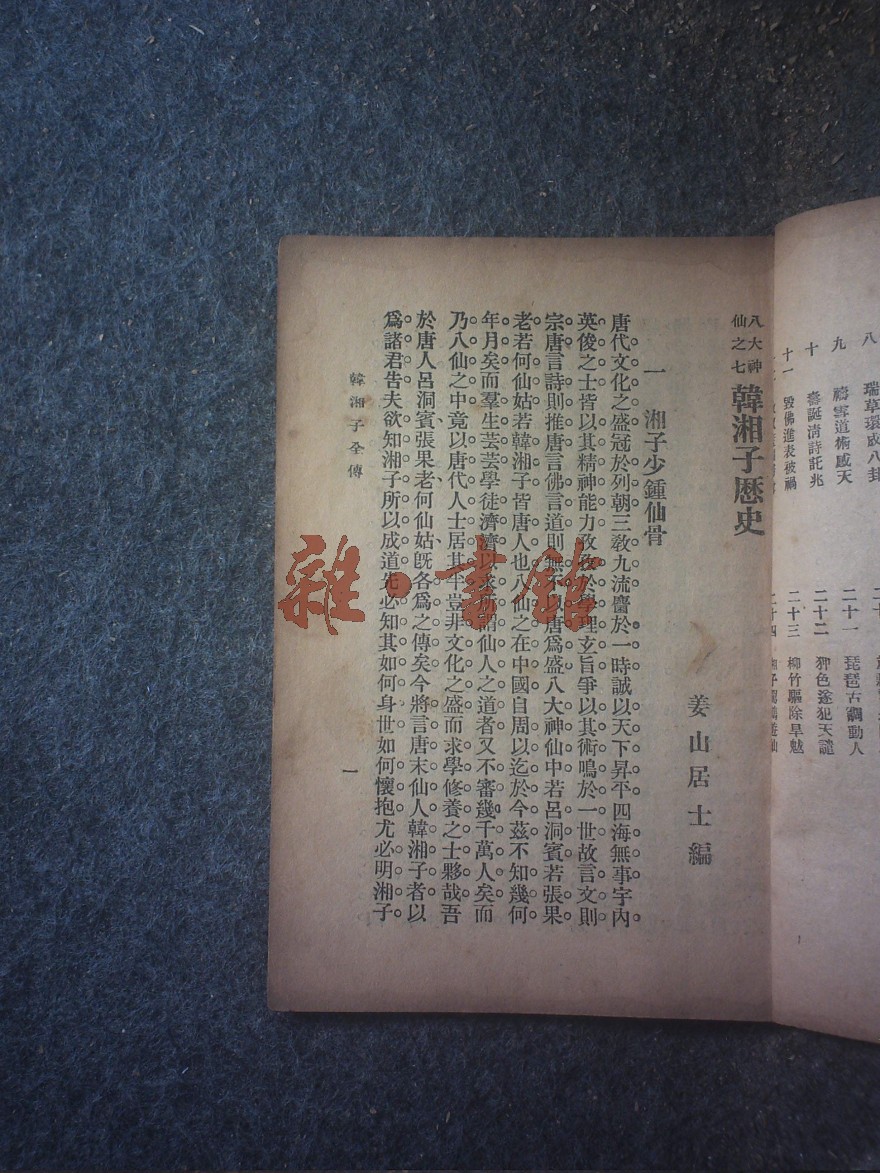 八　瑞草環成八卦
九　禱雪道術感天
十　壽誕清詩託兆
十一　毀佛進表被禍
二十一　琵琶古調動人
二十二　狎色遂犯天譴
二十三　柳竹驅除旱魃
二十四
八大神仙之七　韓湘子歷史
姜山居士編
一　湘子少鍾仙骨
唐代文化之盛冠於列朝三教九流薈於一時誠以天下昇平四海無事宇內
英俊之士皆以其精神能力孜孜於學理玄旨爭以其術鳴於一世故言文則
宗唐言詩則推唐言佛言道則無不以唐爲盛八大神仙中若呂洞賓若張果
老若何仙姑若韓湘子皆唐人也八仙之在中國自周以迄於今茲不知幾何
年月矣而羣生芸芸學徒濟濟以求所謂仙人之道者又不審幾千萬人矣而
乃八仙之中竟以唐代人士居其半豈非文化之盛而求學修養之士夥哉吾
於唐人呂洞賓、張果老、何仙姑、旣各爲之傳矣今將言唐末仙人韓湘子者以
爲諸君告夫欲知湘子所以成道先必知其如何身世如何懷抱尤必明湘子
韓湘子全傳
一
雜·書館